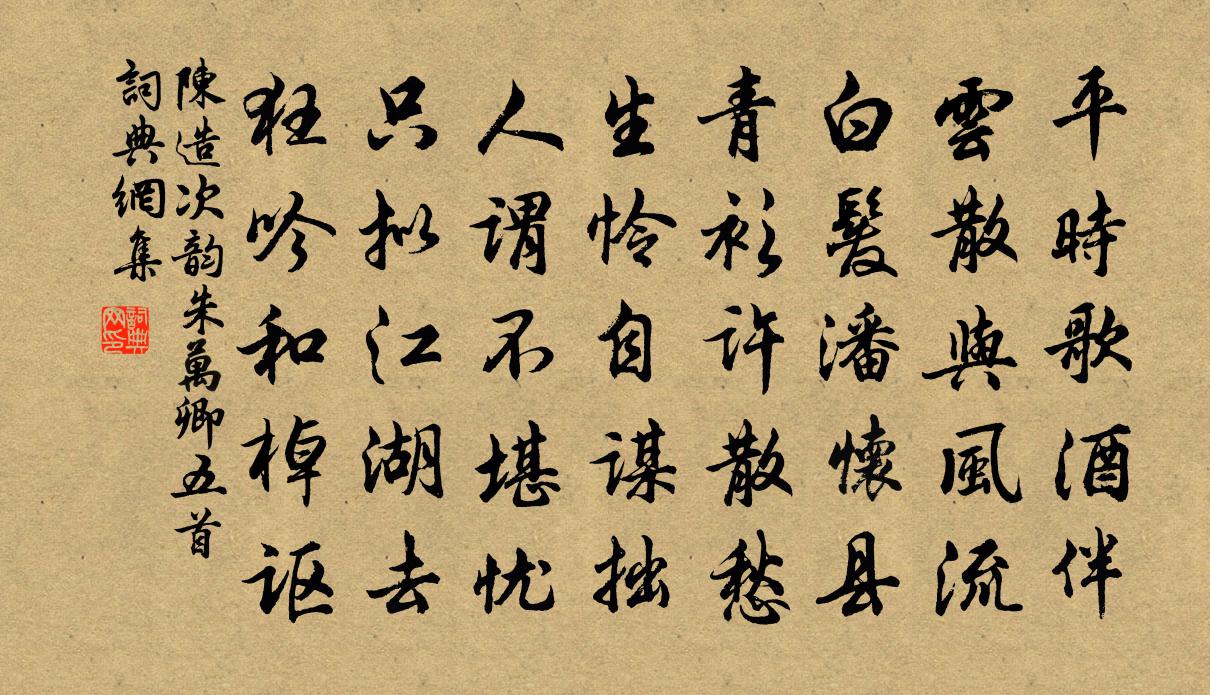 平時歌酒伴
雲散與風流
白髮潘懷县
青衫許散愁
生怜自謀拙
人謂不堪忧
只拟江湖去
狂吟和棹讴
陳造次韵朱萬卿五首
詞典網集
詞典网印